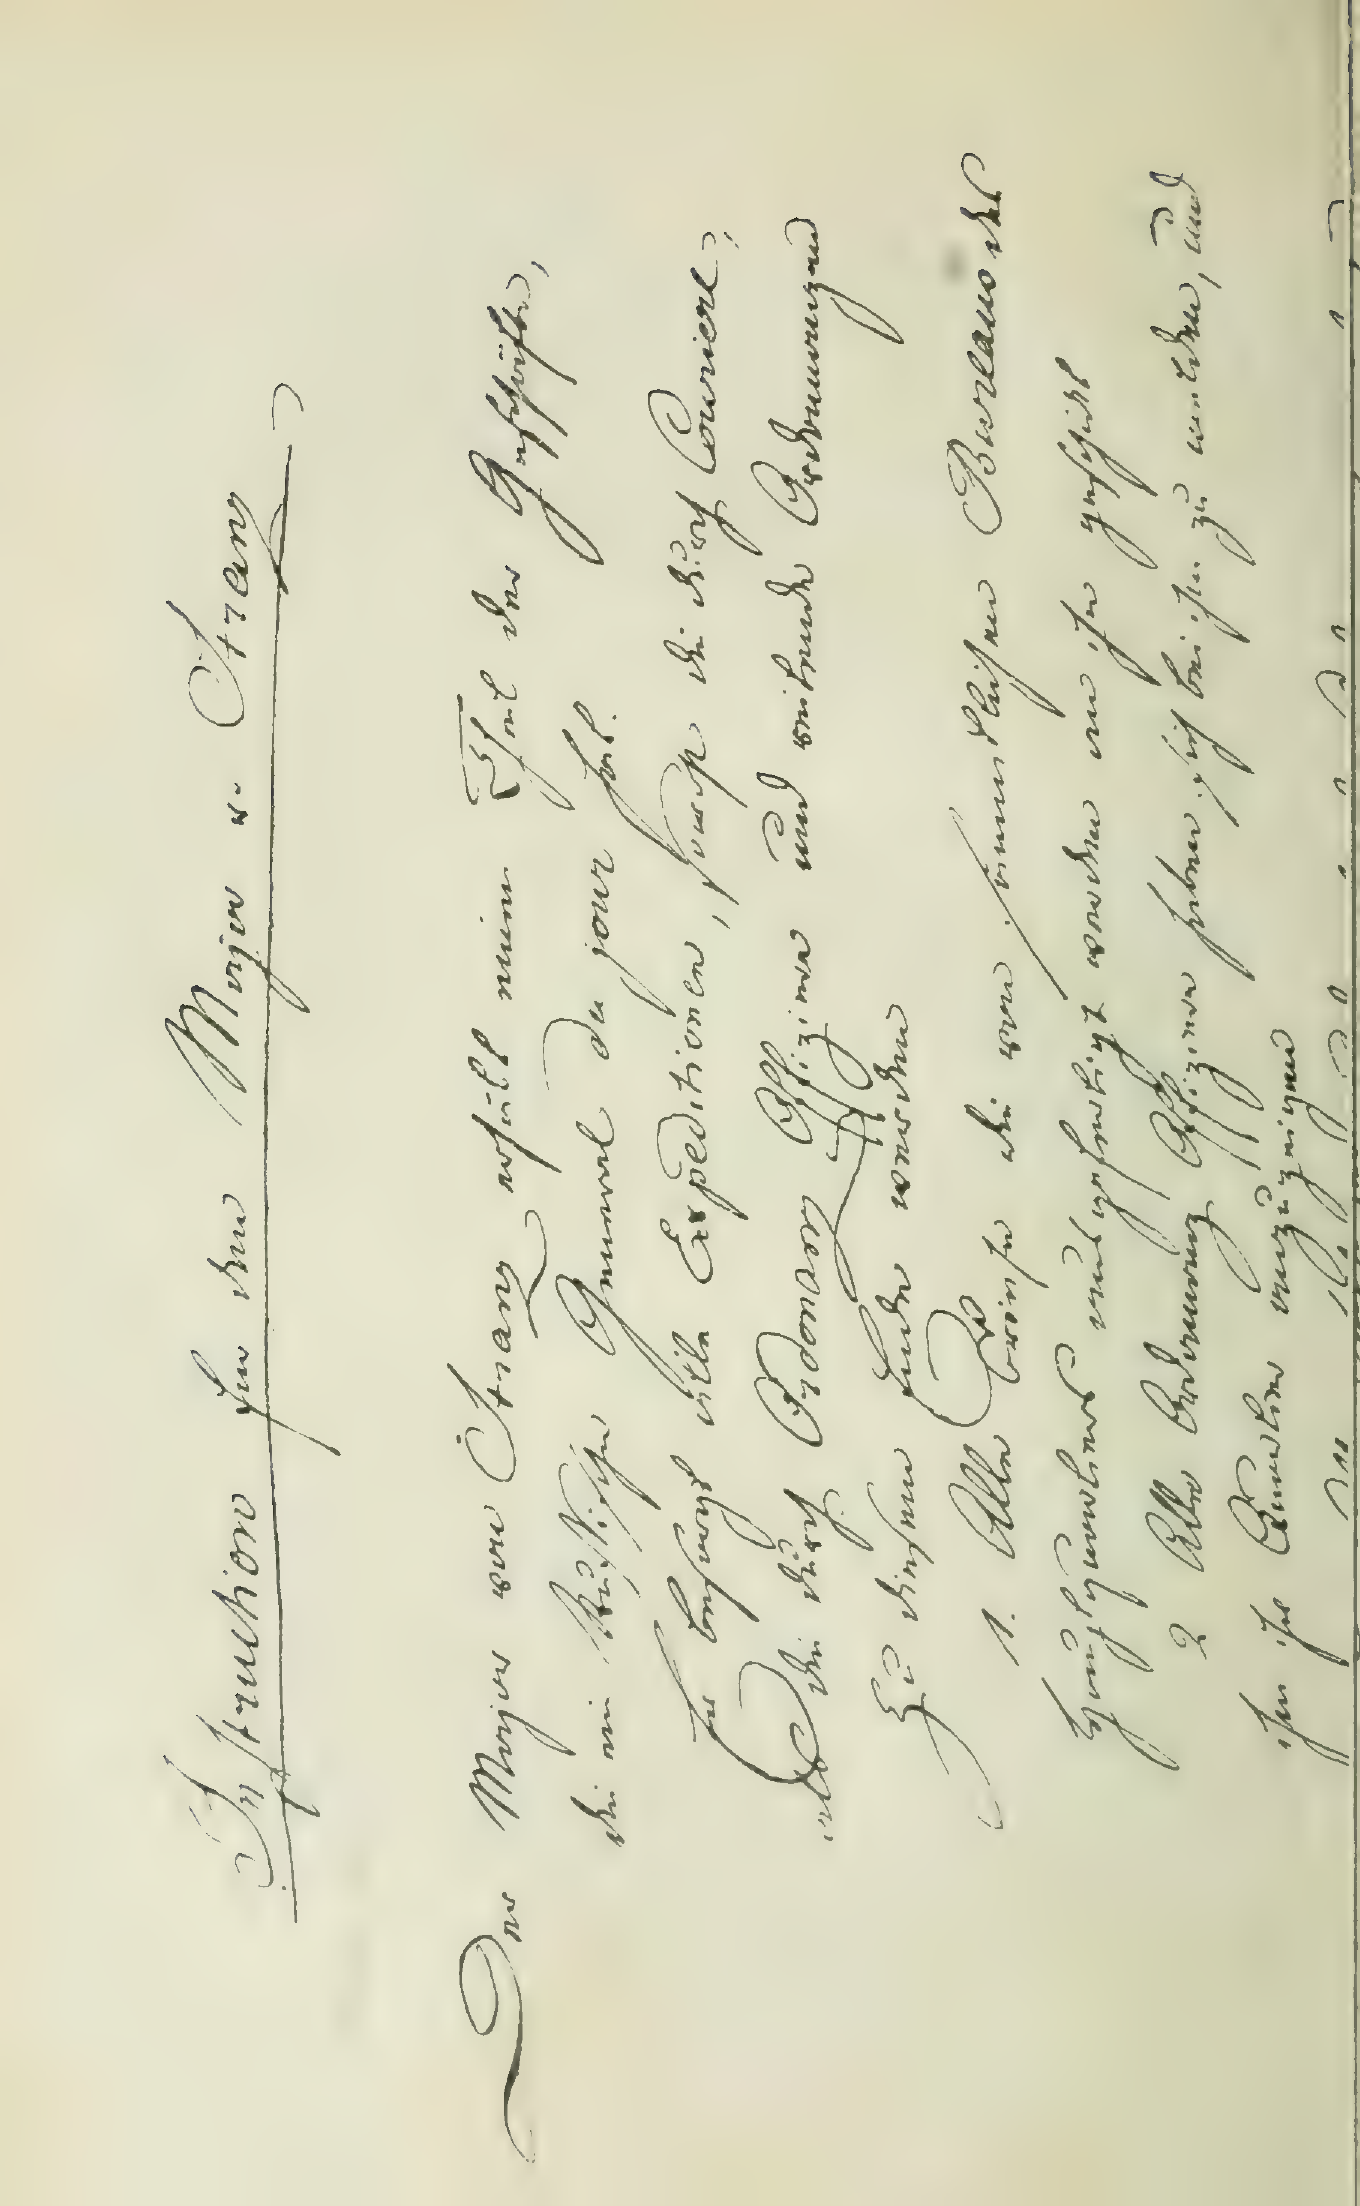 Instruction für den Major v. Stranz
Der Major von Stranz erhält einen Theil der Geschäfte,
die ein Russischer General du jour hat.
Er besorgt alle Expeditionen, sowohl die durch Couriere,
als die durch Ordonanz Offiziere und reitende Ordonnanzen
Zu diesem Ende werden
1. Alle Briefe die von sämmtlichen Bureaus des
Hauptquartiers ausgefertigt werden an ihn geschickt
2 Alle Ordonnanz Offiziere haben sich bei ihm zu melden, und
ihm ihr Quartier anzuzeigen